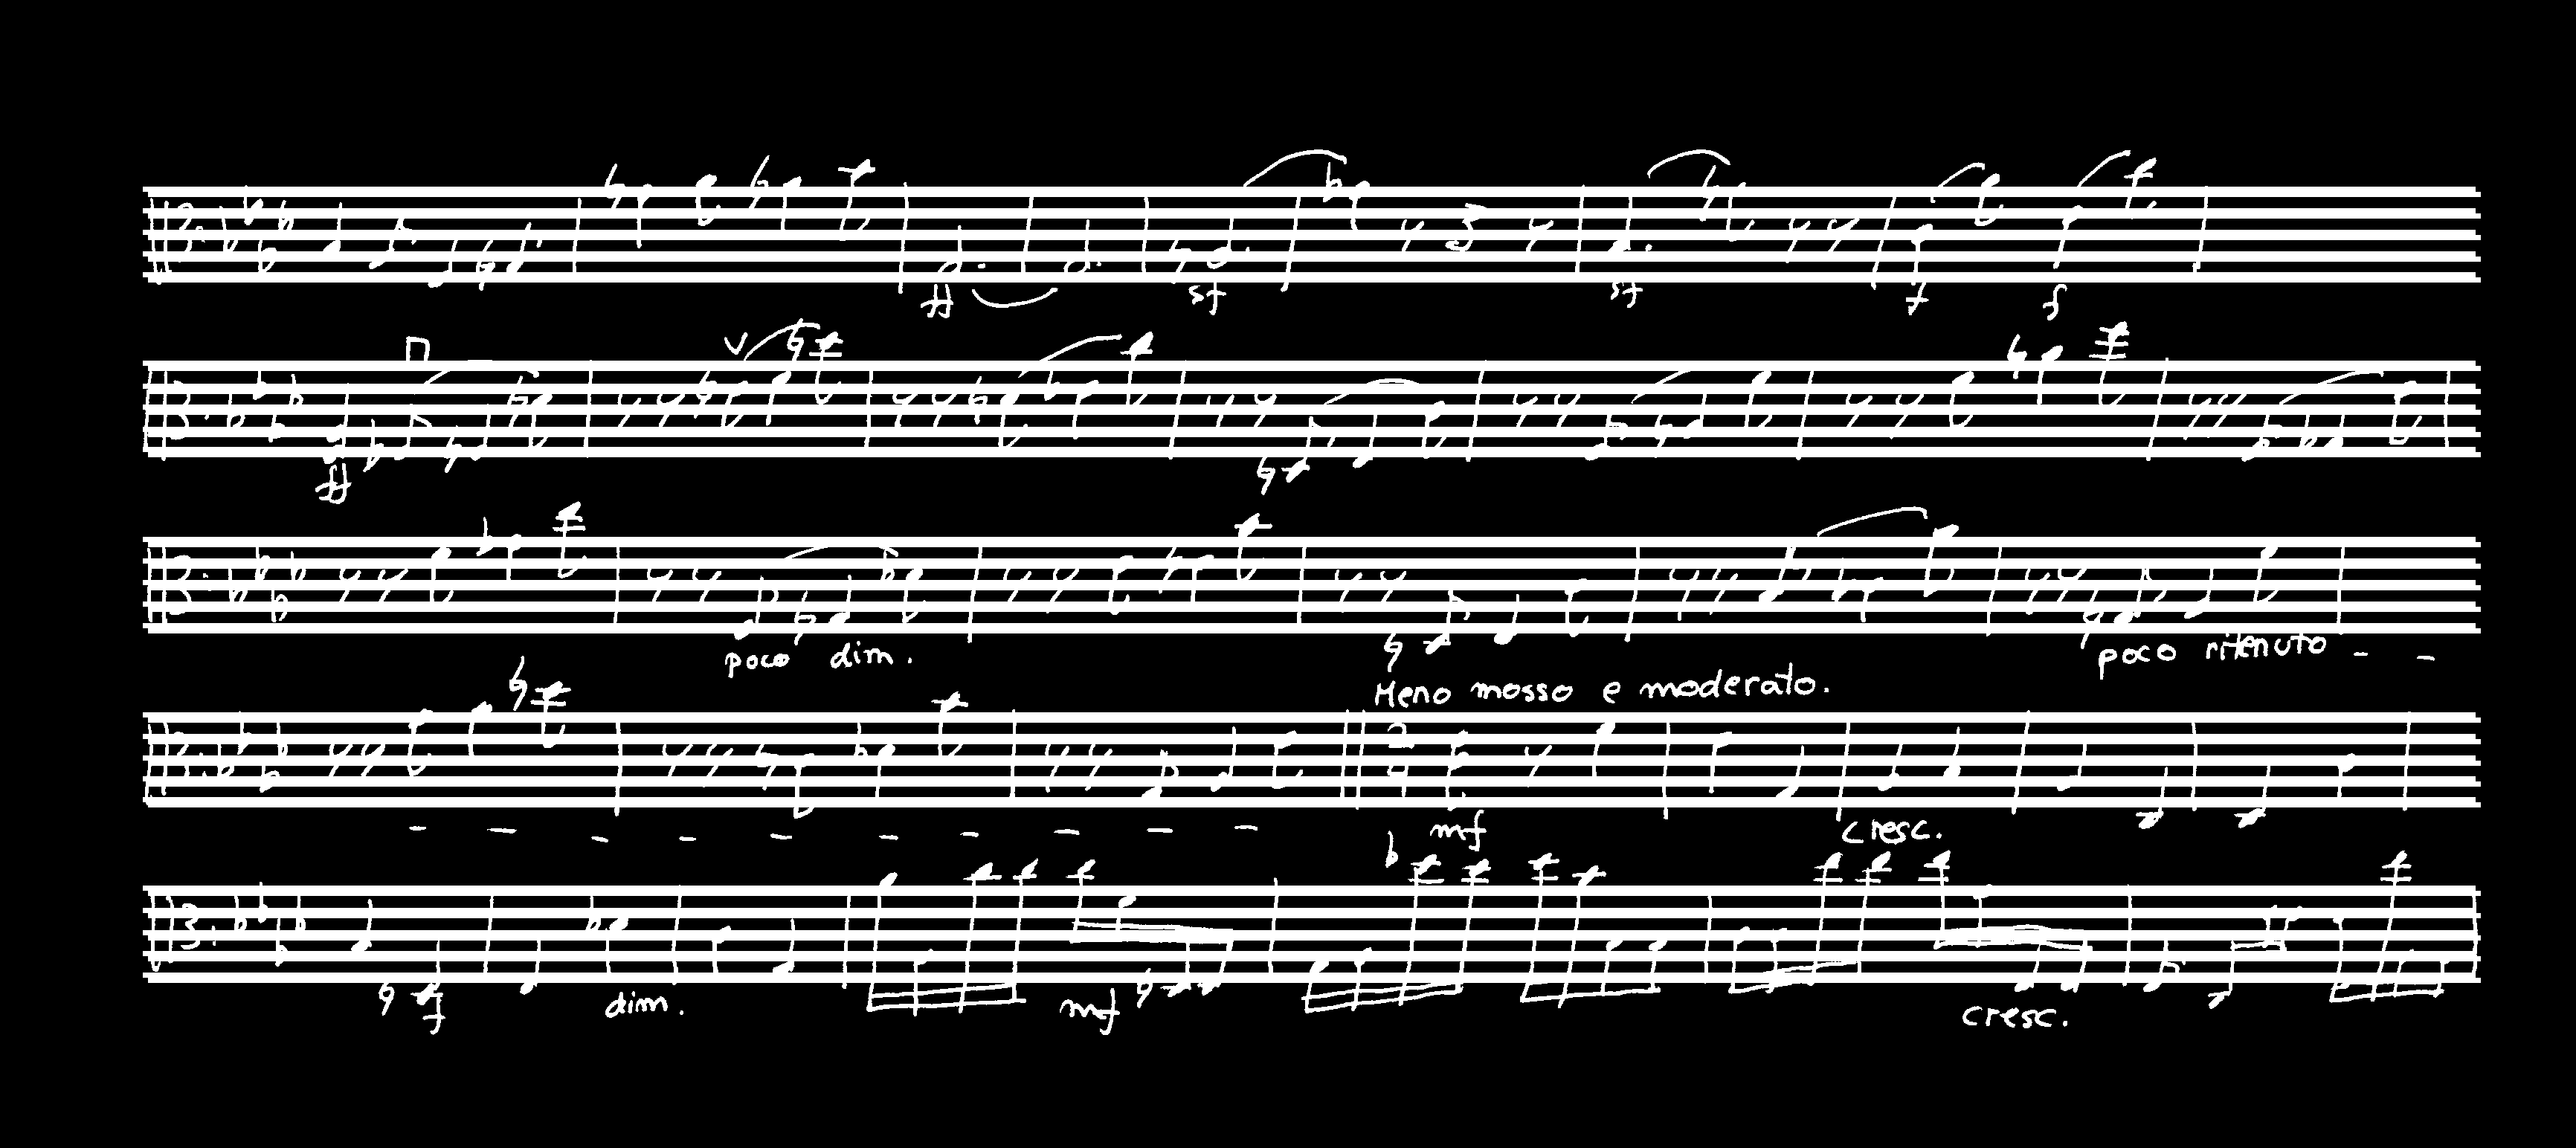 ff sf sf f f
ff
poco dim. poco ritenuto - -
Meno mosso e moderato.
mf cresc.
f dim. mf cresc.